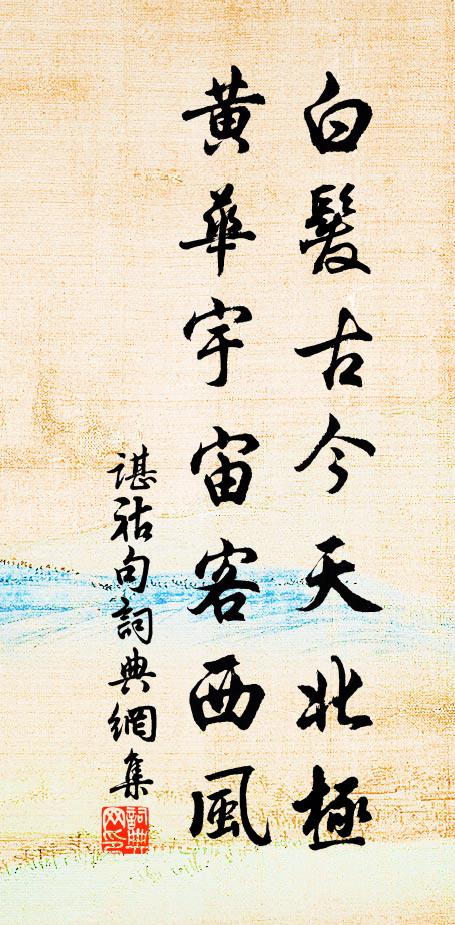 白髮古今天北極
黃華宇宙客西風
諶祜句詞典網集
詞典网